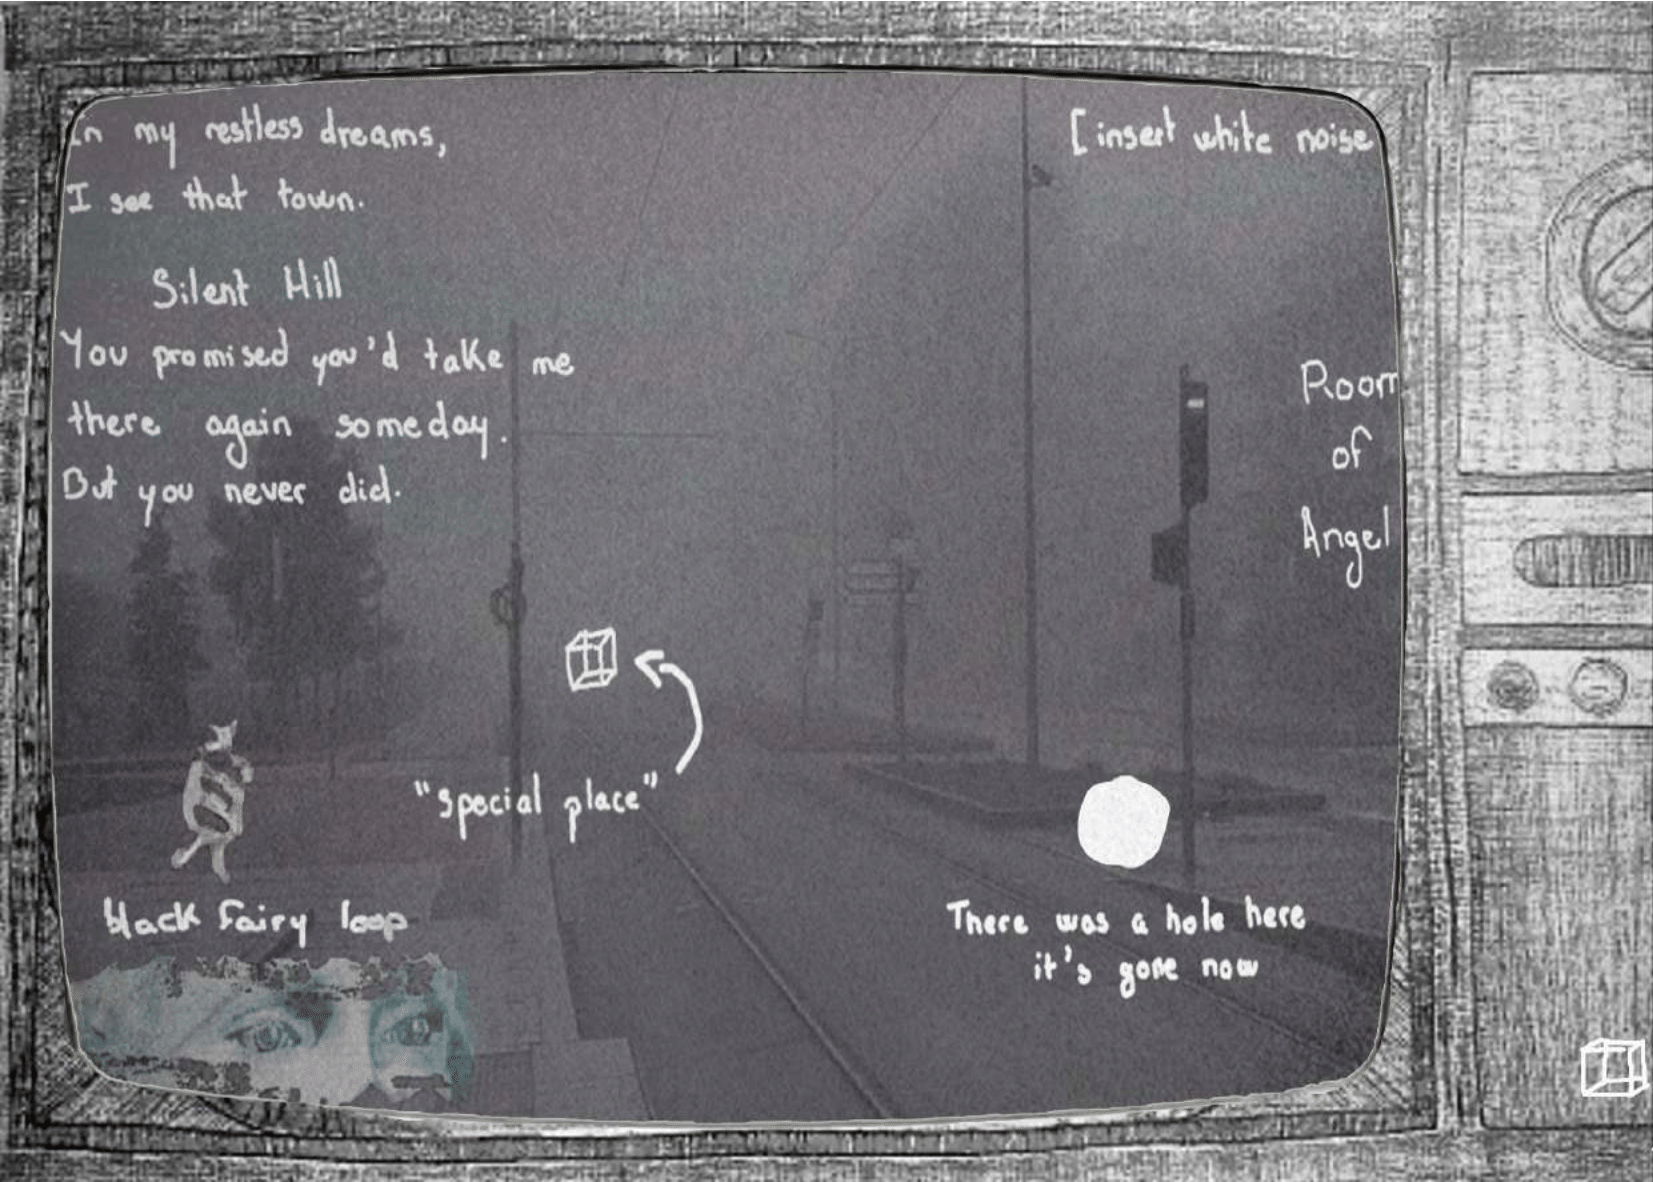 In my restless dreams,
I see that town.
Silent Hill
You promised you'd take me
there again someday.
But you never did.
[insert white noise
Room
of
Angel
"special place"
black fairy loop
There was a hole here
it's gone now